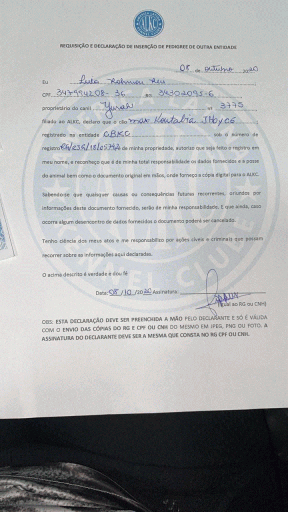 ALKC
REQUISIÇÃO E DECLARAÇÃO DE INSERÇÃO DE PEDIGREE DE OUTRA ENTIDADE
08 de outubro 2020
Eu
CPF RG
proprietário do canil nº 3775
filiado ao ALKC, declaro que o cão Max
registrado na entidade CBKC sob o número de
registro de minha propriedade, autorizo que seja feito o registro em
meu nome, e reconheço que é de minha total responsabilidade os dados fornecidos e a posse
do animal bem como o documento original em mãos, onde forneço a cópia digital para o ALKC.
Sabendo-se que quaisquer causas ou consequências futuras recorrentes, oriundos por
informações deste documento fornecido, serão de minha responsabilidade. E que ainda, caso
ocorra algum desencontro de dados fornecidos o documento poderá ser cancelado.
Tenho ciência dos meus atos e me responsabilizo por ações cíveis e criminais que possam
recorrer sobre as informações aqui declaradas.
O acima descrito é verdade e dou fé
Data: 08/10/2020 Assinatura:
(igual ao RG ou CNH)
OBS: ESTA DECLARAÇÃO DEVE SER PREENCHIDA A MÃO PELO DECLARANTE E SÓ É VÁLIDA
COM O ENVIO DAS CÓPIAS DO RG E CPF OU CNH DO MESMO EM JPEG, PNG OU FOTO. A
ASSINATURA DO DECLARANTE DEVE SER A MESMA QUE CONSTA NO RG CPF OU CNH.